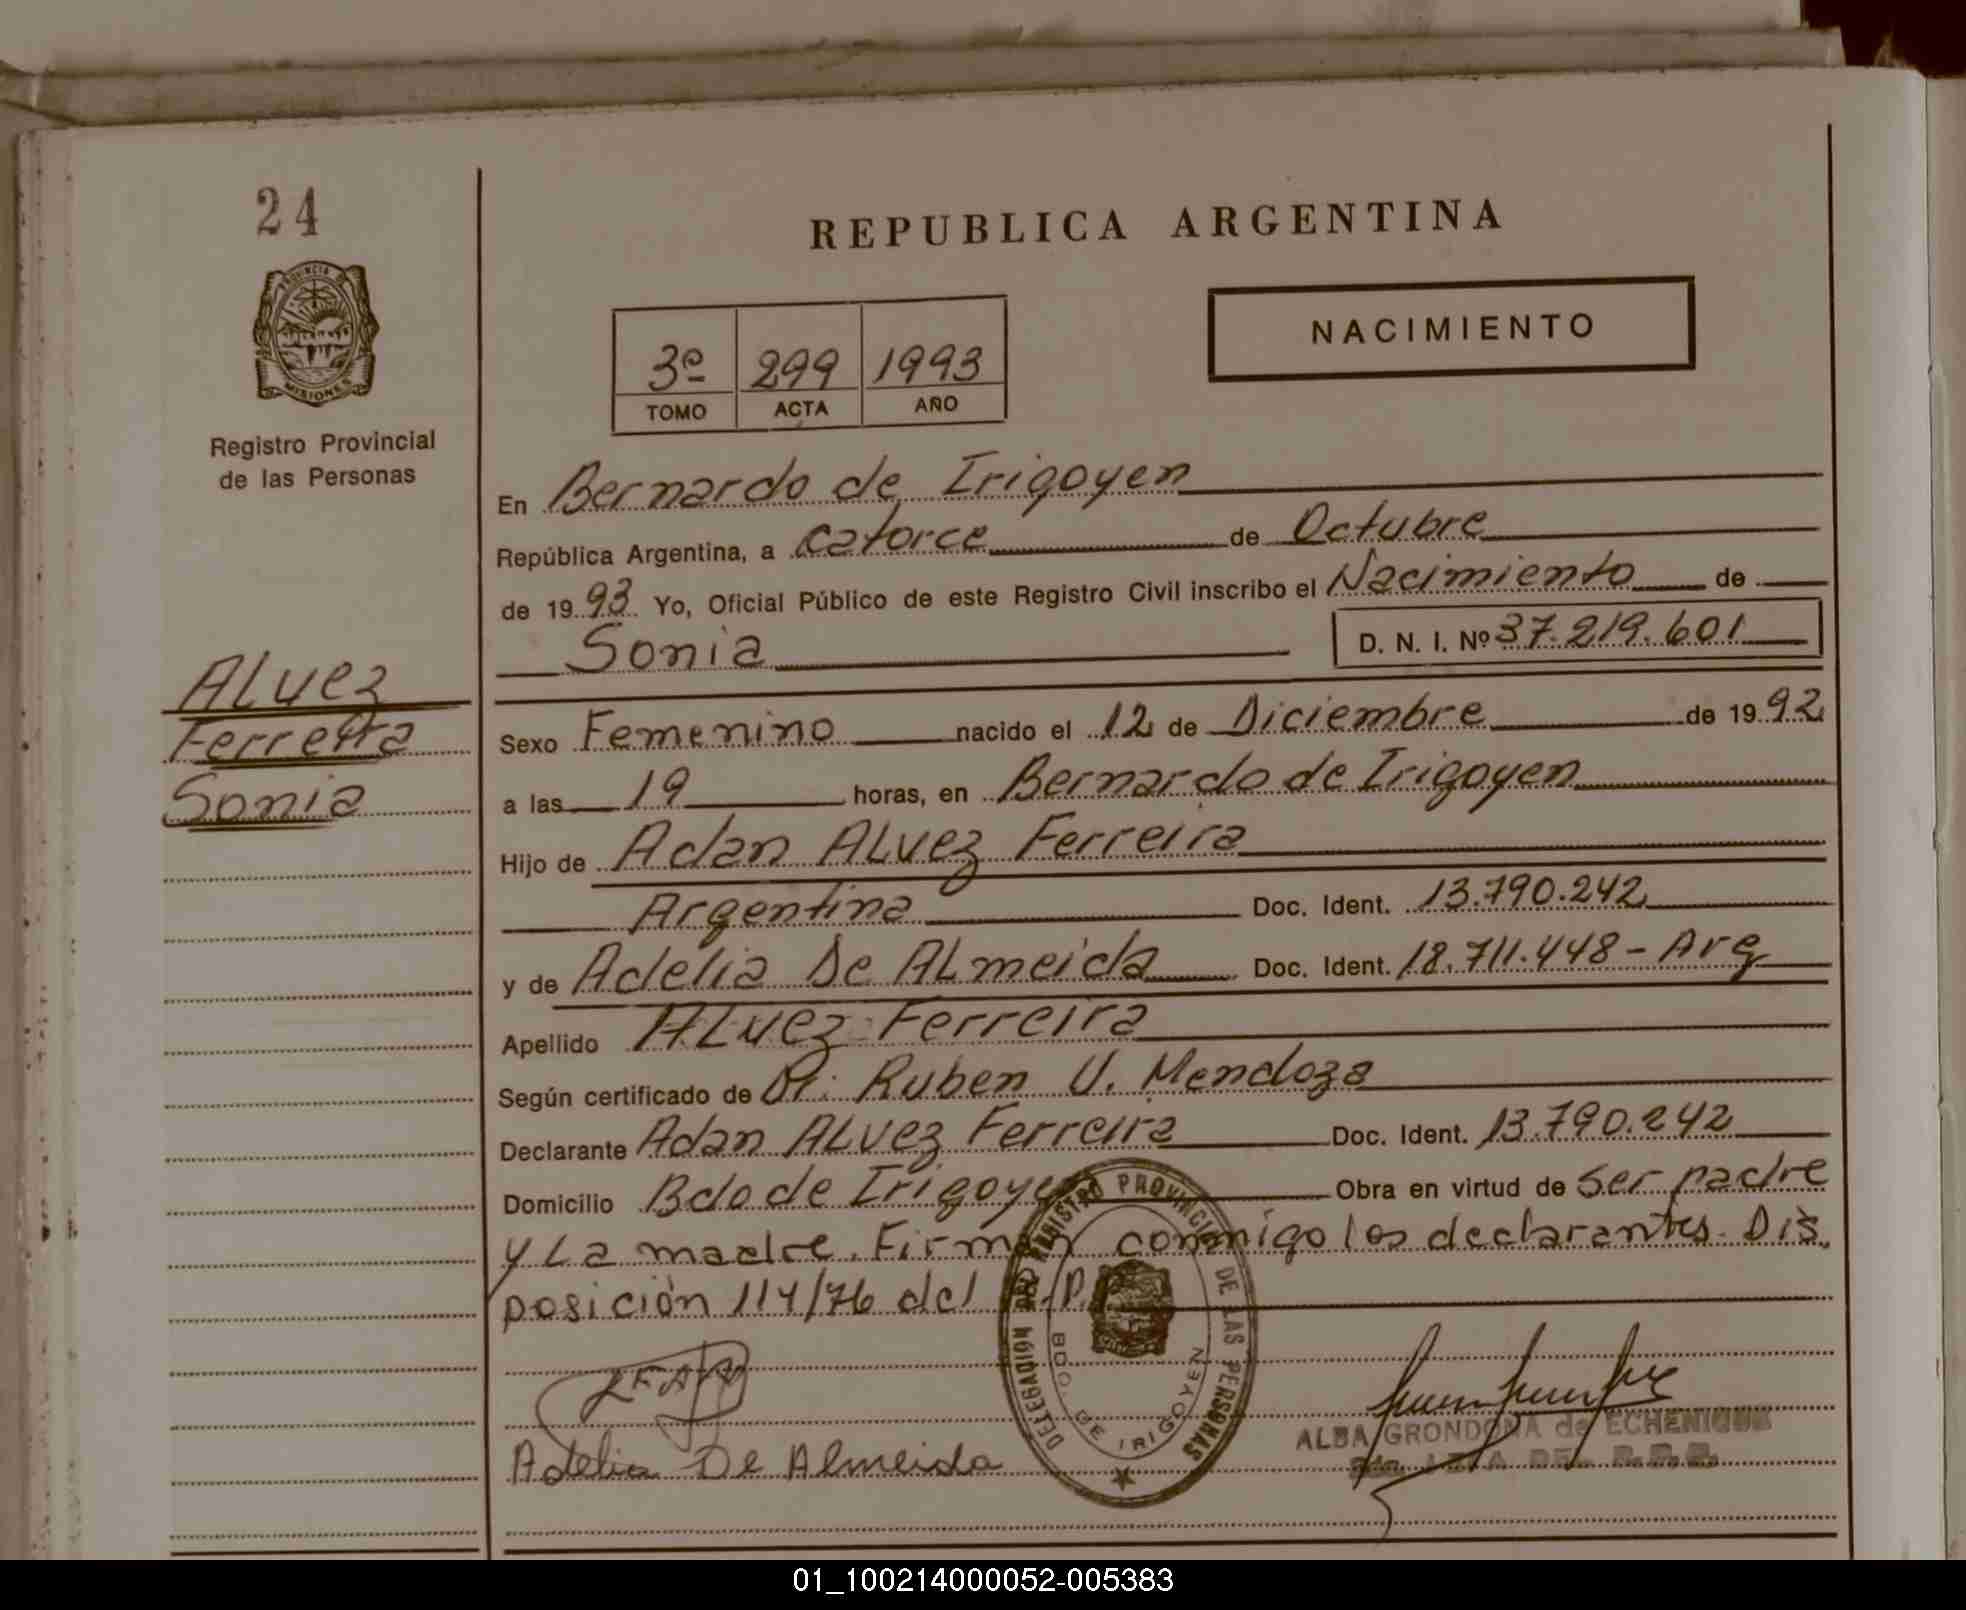 24
PROVINCIA DE
MISIONES
Registro Provincial
de las Personas
REPUBLICA ARGENTINA
NACIMIENTO
3º 299 1993
TOMO ACTA AÑO
En Bernardo de Irigoyen
República Argentina, a catorce de Octubre
de 1993 Yo, Oficial Público de este Registro Civil inscribo el Nacimiento de
Sonia D. N. I. Nº 37.219.601
Alvez
Ferreira
Sonia
Sexo Femenino nacido el 12 de Diciembre de 1992
a las 19 horas, en Bernardo de Irigoyen
Hijo de Adan Alvez Ferreira
Argentina Doc. Ident. 13.790.242
y de Adelia De Almeida Doc. Ident. 18.711.448 - Arg
Apellido Alvez Ferreira
Según certificado de Dr. Ruben U. Mendoza
Declarante Adan Alvez Ferreira Doc. Ident. 13.790.242
Domicilio Bdo de Irigoyen Obra en virtud de ser padre
y La madre. Firman conmigo los declarantes. Dis
posición 114/76 del
DELEGACIÓN DEL REGISTRO PROVINCIAL DE LAS PERSONAS
BDO. DE IRIGOYEN
Adelia De Almeida
ALBA GRONDONA de ECHENIQUE
DEL R.P.P.
01_100214000052-005383